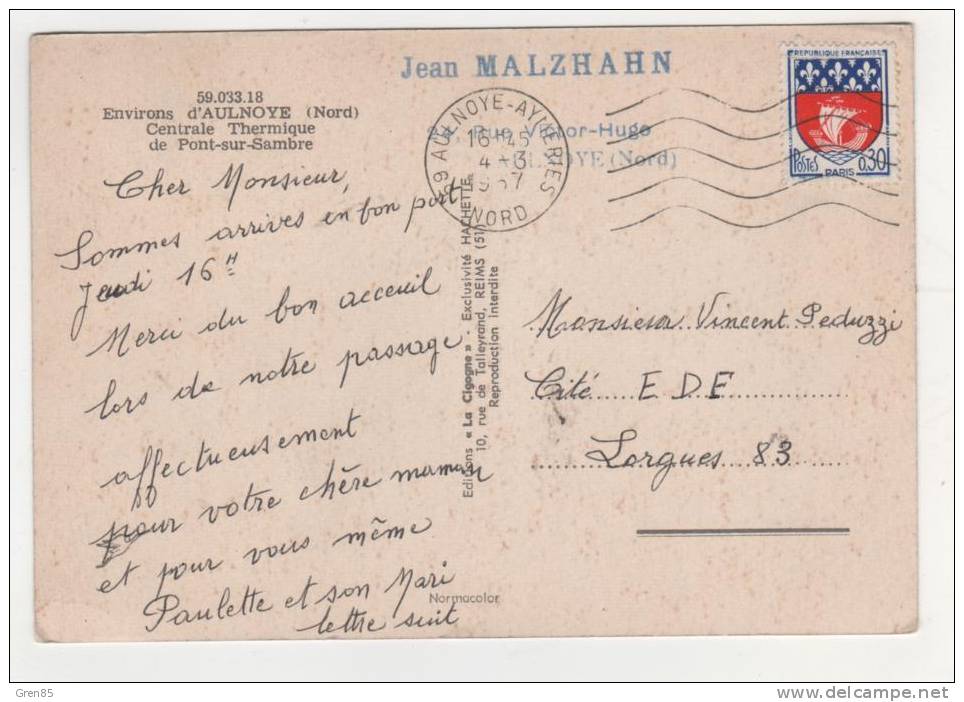 Jean MALZHAHN
24, Rue Victor-Hugo
AULNOYE (Nord)
59 AULNOYE-AYMERIES
16-45
4-3
1967
NORD
REPUBLIQUE FRANÇAISE
POSTES
0,30
PARIS
59.033.18
Environs d'AULNOYE (Nord)
Centrale Thermique
de Pont-sur-Sambre
Cher Monsieur,
Sommes arrives en bon port
Jeudi 16 H
Merci du bon acceuil
lors de notre passage
affectueusement
pour votre chère maman
et pour vous même
Paulette et son Mari
lettre suit
Editions « La Cigogne » - Exclusivité HACHETTE
10, rue de Talleyrand, REIMS (51)
Reproduction interdite
Normacolor
Monsieur Vincent Peduzzi
Cité EDF
Lorgues 83
Gren85